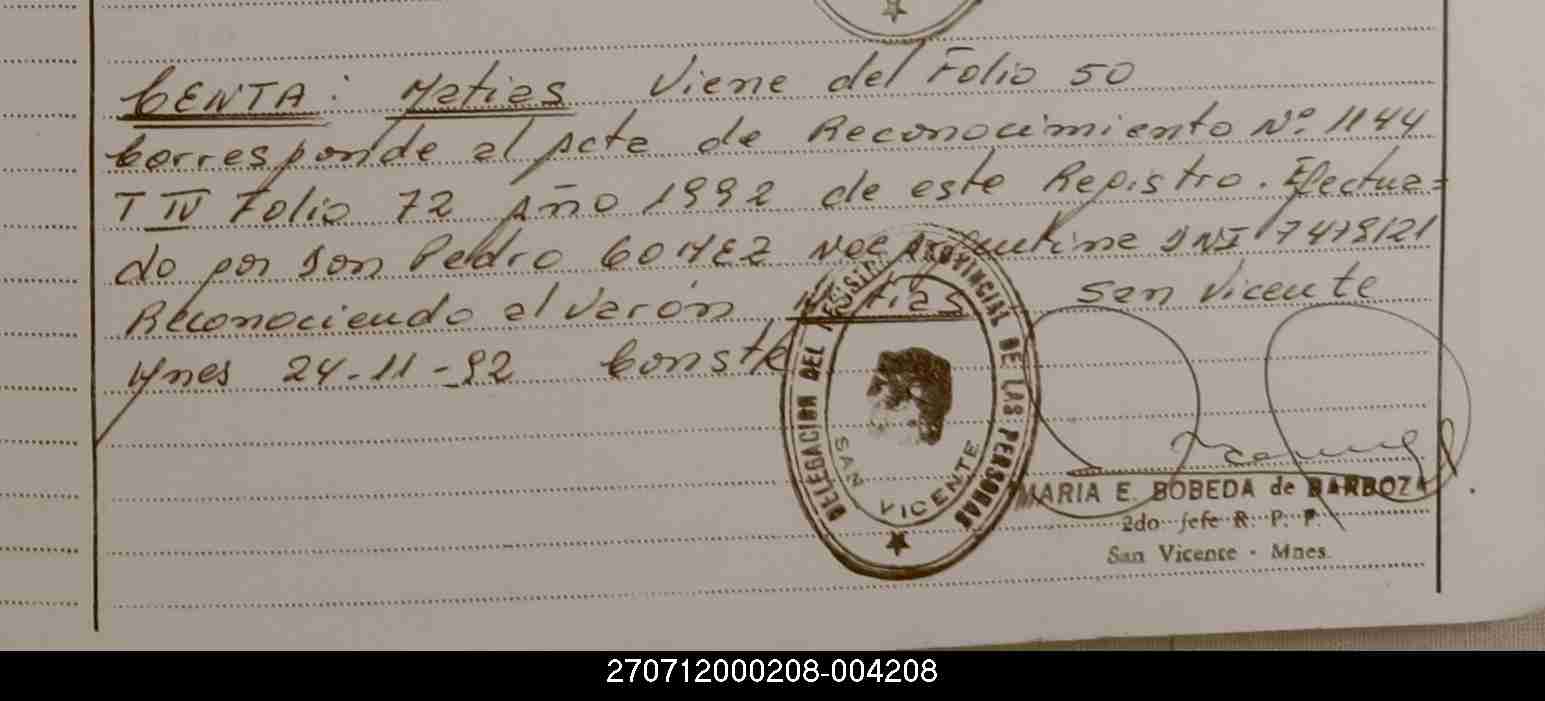 CENTA: Matias Viene del Folio 50
Corresponde al Acta de Reconocimiento Nº 1144
T IV Folio 72 Año 1992 de este Registro. Efectua=
do por don Pedro GOMEZ Nac Argentino DNI 7478121
Reconociendo al Varón Matias San Vicente
Mnes 24-11-92 Conste
DELEGACION DEL REGISTRO PROVINCIAL DE LAS PERSONAS
SAN VICENTE
MARIA E. BOBEDA de BARBOZA
2do Jefe R. P. P.
San Vicente - Mnes.
270712000208-004208